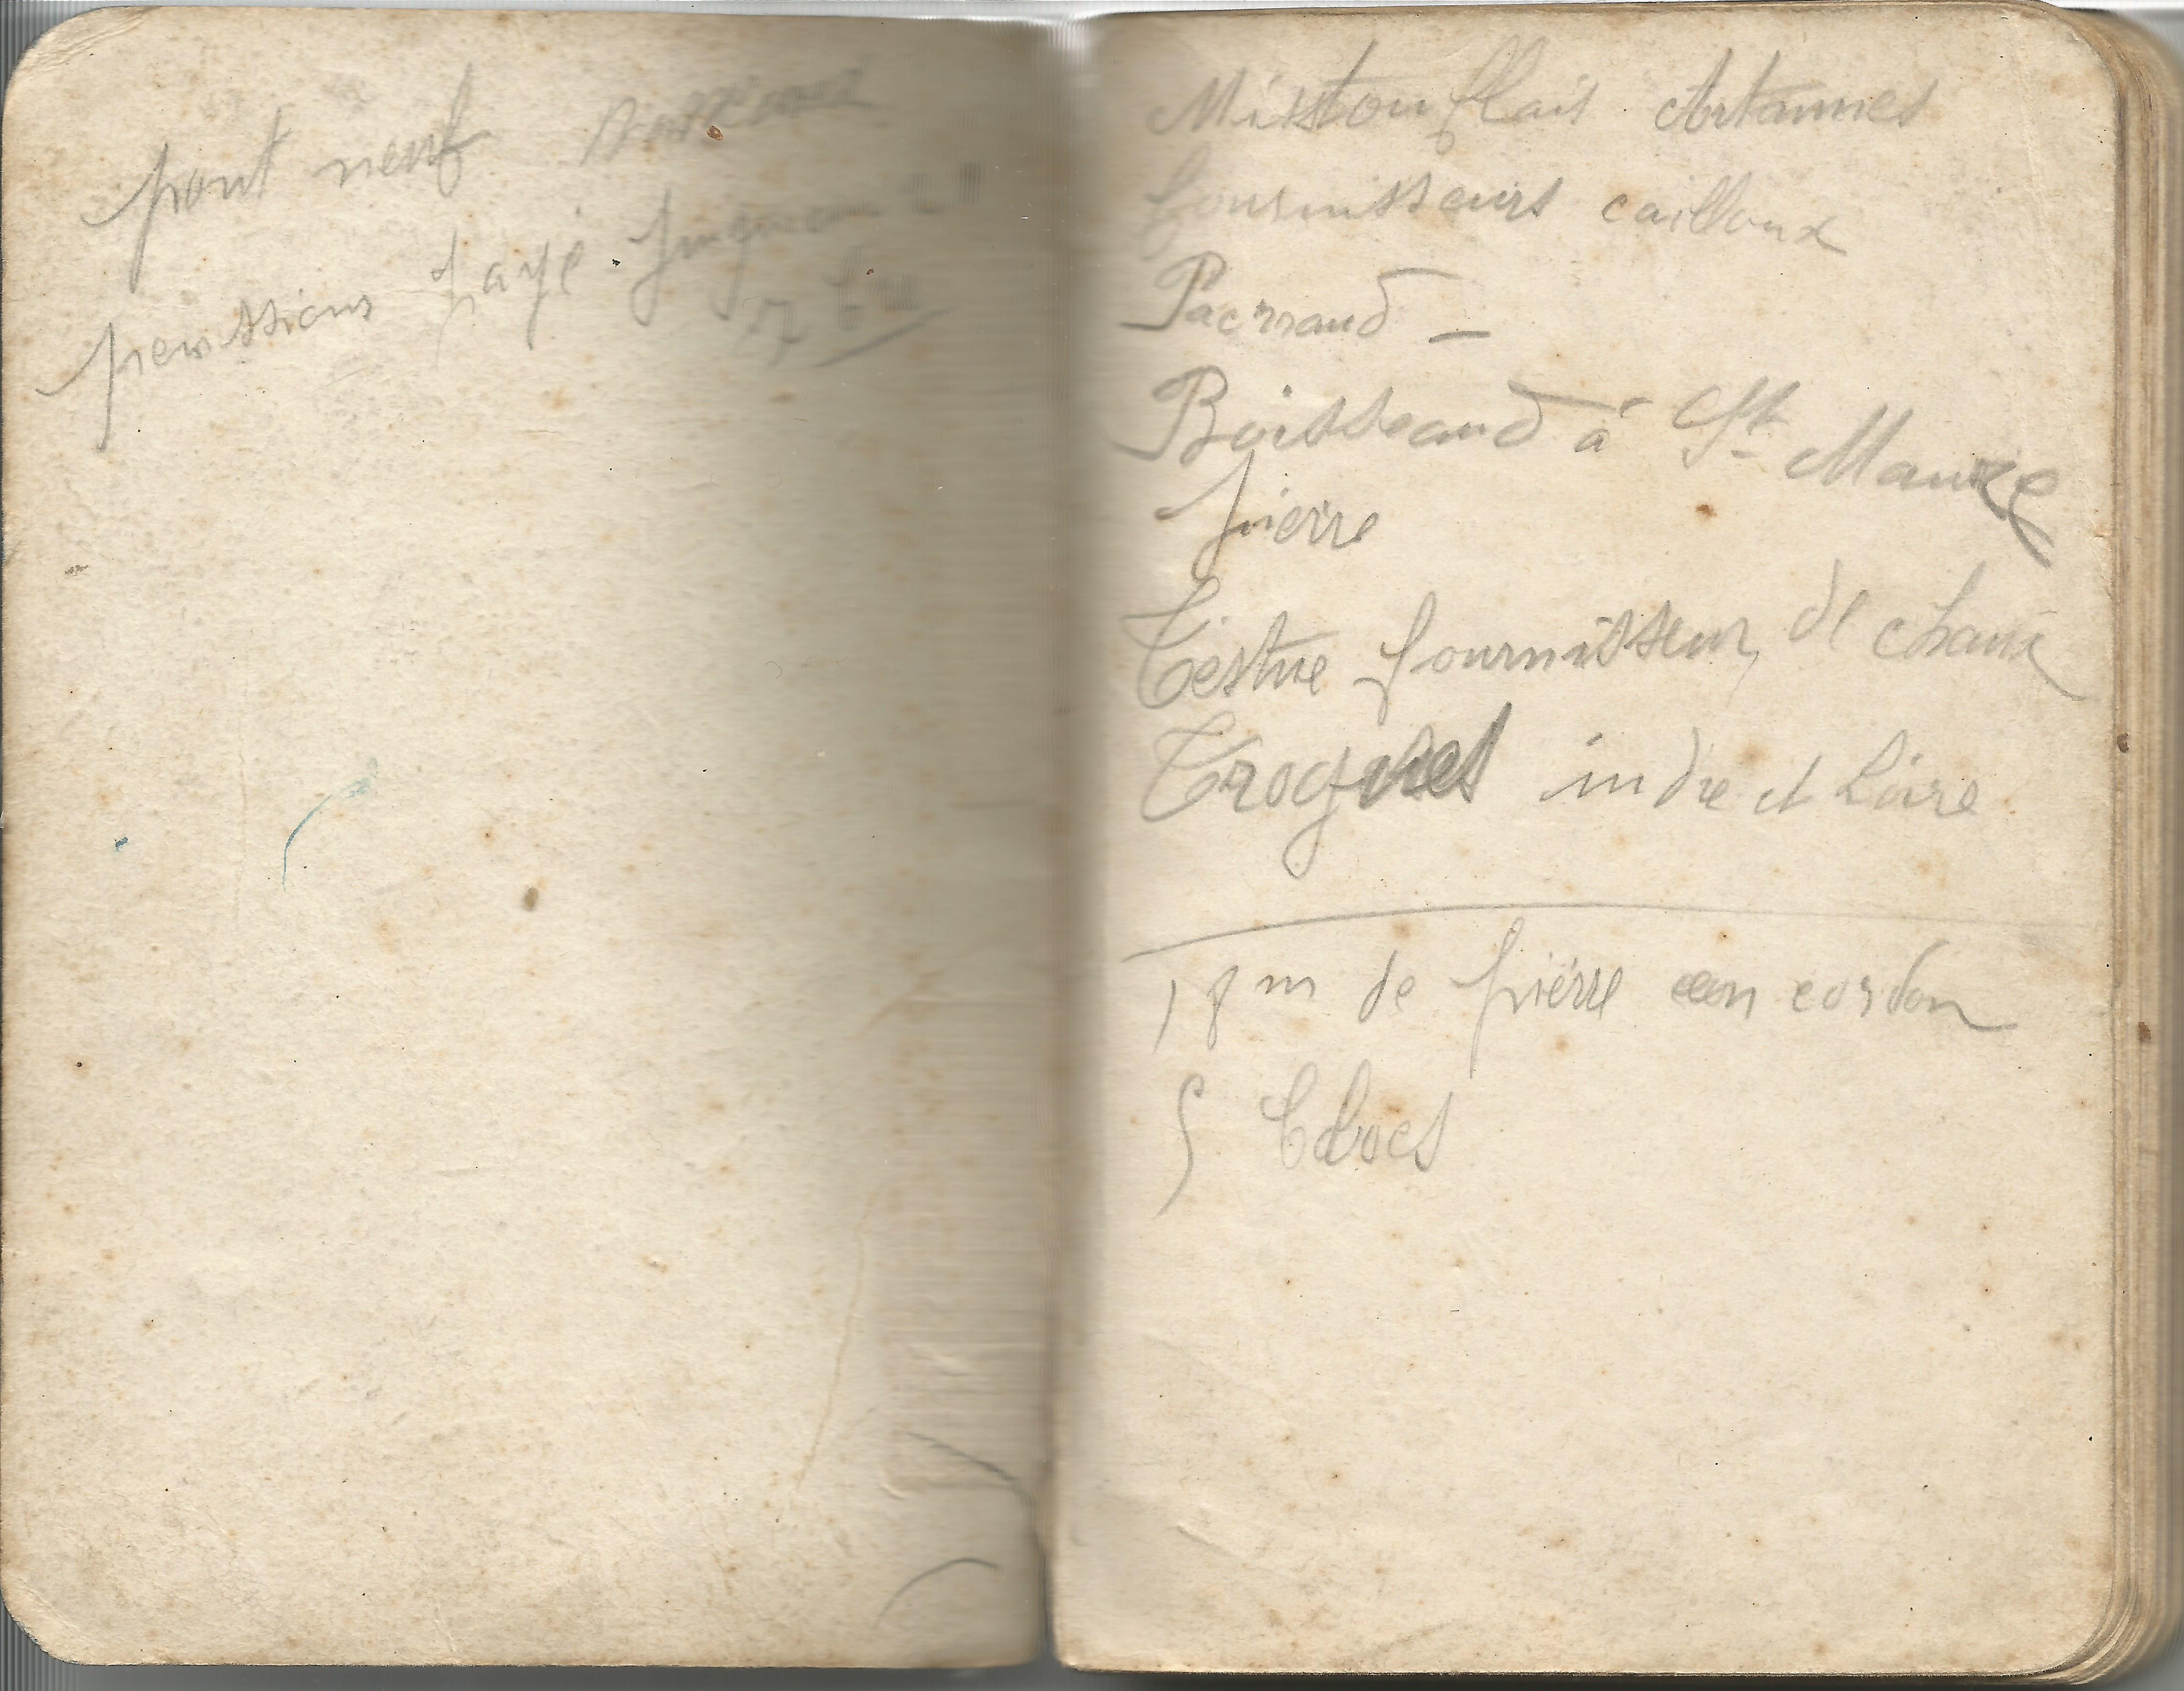 pont neuf
penssions payé
Mistouflais Artannes
fournisseurs cailloux
Pacraud –
Boisseaud à St Maure
pierre
Testue fournisseur de chaux
Trogues indre et Loire
18 m de pierre en cordon
5 blocs